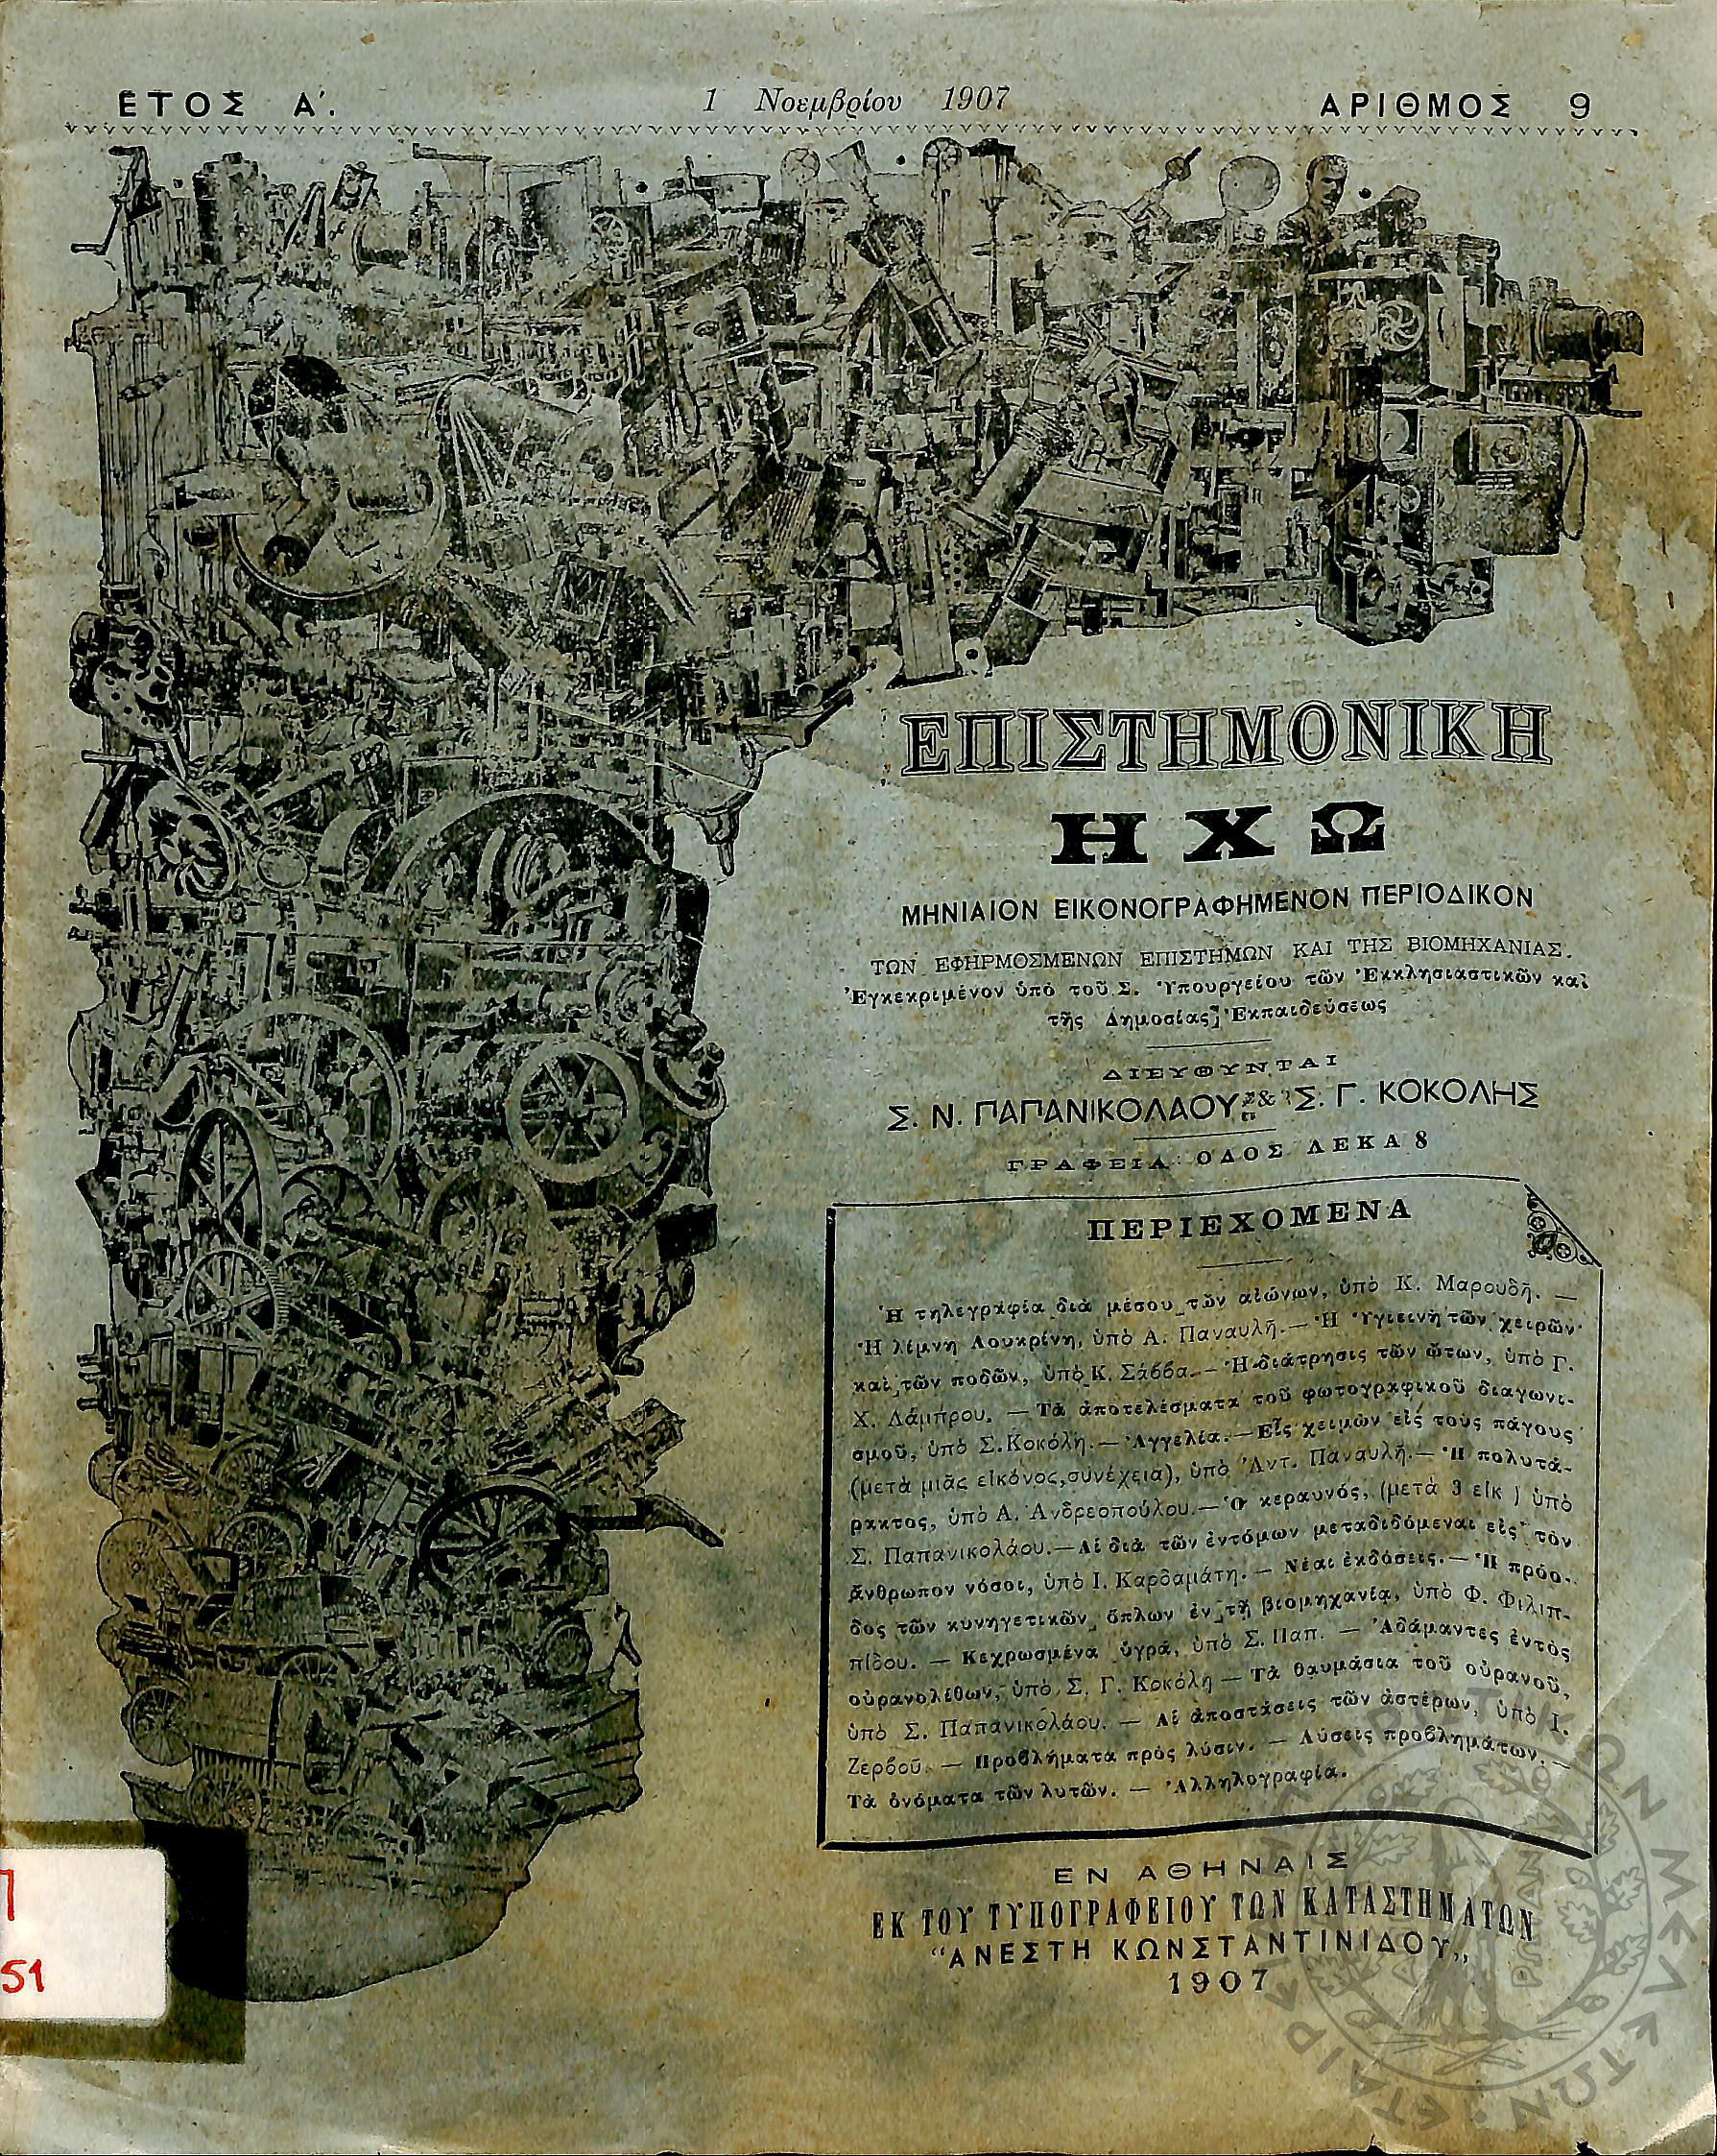 ΕΤΟΣ Α΄. 1 Νοεμβρίου 1907 ΑΡΙΘΜΟΣ 9
ΕΠΙΣΤΗΜΟΝΙΚΗ
ΗΧΩ
ΜΗΝΙΑΙΟΝ ΕΙΚΟΝΟΓΡΑΦΗΜΕΝΟΝ ΠΕΡΙΟΔΙΚΟΝ
ΤΩΝ ΕΦΗΡΜΟΣΜΕΝΩΝ ΕΠΙΣΤΗΜΩΝ ΚΑΙ ΤΗΣ ΒΙΟΜΗΧΑΝΙΑΣ.
Ἐγκεκριμένον ὑπὸ τοῦ Σ. Ὑπουργείου τῶν Ἐκκλησιαστικῶν καὶ
τῆς Δημοσίας Ἐκπαιδεύσεως
ΔΙΕΥΘΥΝΤΑΙ
Σ. Ν. ΠΑΠΑΝΙΚΟΛΑΟΥ & Σ. Γ. ΚΟΚΟΛΗΣ
ΓΡΑΦΕΙΑ ΟΔΟΣ ΛΕΚΑ 8
ΠΕΡΙΕΧΟΜΕΝΑ
Ἡ τηλεγραφία διὰ μέσου τῶν αἰώνων, ὑπὸ Κ. Μαρουδῆ. —
Ἡ λίμνη Λουκρίνη, ὑπὸ Α. Παναυλῆ. — Ἡ Ὑγιεινὴ τῶν χειρῶν
καὶ τῶν ποδῶν, ὑπὸ Κ. Σάββα. — Ἡ διάτρησις τῶν ὤτων, ὑπὸ Γ.
Χ. Λάμπρου. — Τὰ ἀποτελέσματα τοῦ φωτογραφικοῦ διαγωνι-
σμοῦ, ὑπὸ Σ. Κοκόλη. — Ἀγγελία. — Εἷς χειμὼν εἰς τοὺς πάγους
(μετὰ μιᾶς εἰκόνος, συνέχεια), ὑπὸ Ἀντ. Παναυλῆ. — Ἡ πολυτά-
ρακτος, ὑπὸ Α. Ἀνδρεοπούλου. — Ὁ κεραυνός, (μετὰ 3 εἰκ ) ὑπὸ
Σ. Παπανικολάου. — Αἱ διὰ τῶν ἐντόμων μεταδιδόμεναι εἰς τὸν
ἄνθρωπον νόσοι, ὑπὸ Ι. Καρδαμάτη. — Νέαι ἐκδόσεις. — Ἡ πρόο-
δος τῶν κυνηγετικῶν ὅπλων ἐν τῇ βιομηχανίᾳ, ὑπὸ Φ. Φιλιπ-
πίδου. — Κεχρωσμένα ὑγρά, ὑπὸ Σ. Παπ. — Ἀδάμαντες ἐντὸς
οὐρανολίθων, ὑπὸ Σ. Γ. Κοκόλη — Τὰ θαυμάσια τοῦ οὐρανοῦ,
ὑπὸ Σ. Παπανικολάου. — Αἱ ἀποστάσεις τῶν ἀστέρων, ὑπὸ Ι.
Ζερβοῦ. — Προβλήματα πρὸς λύσιν. — Λύσεις προβλημάτων. —
Τὰ ὀνόματα τῶν λυτῶν. — Ἀλληλογραφία.
ΕΝ ΑΘΗΝΑΙΣ
ΕΚ ΤΟΥ ΤΥΠΟΓΡΑΦΕΙΟΥ ΤΩΝ ΚΑΤΑΣΤΗΜΑΤΩΝ
“ΑΝΕΣΤΗ ΚΩΝΣΤΑΝΤΙΝΙΔΟΥ„
1907
51